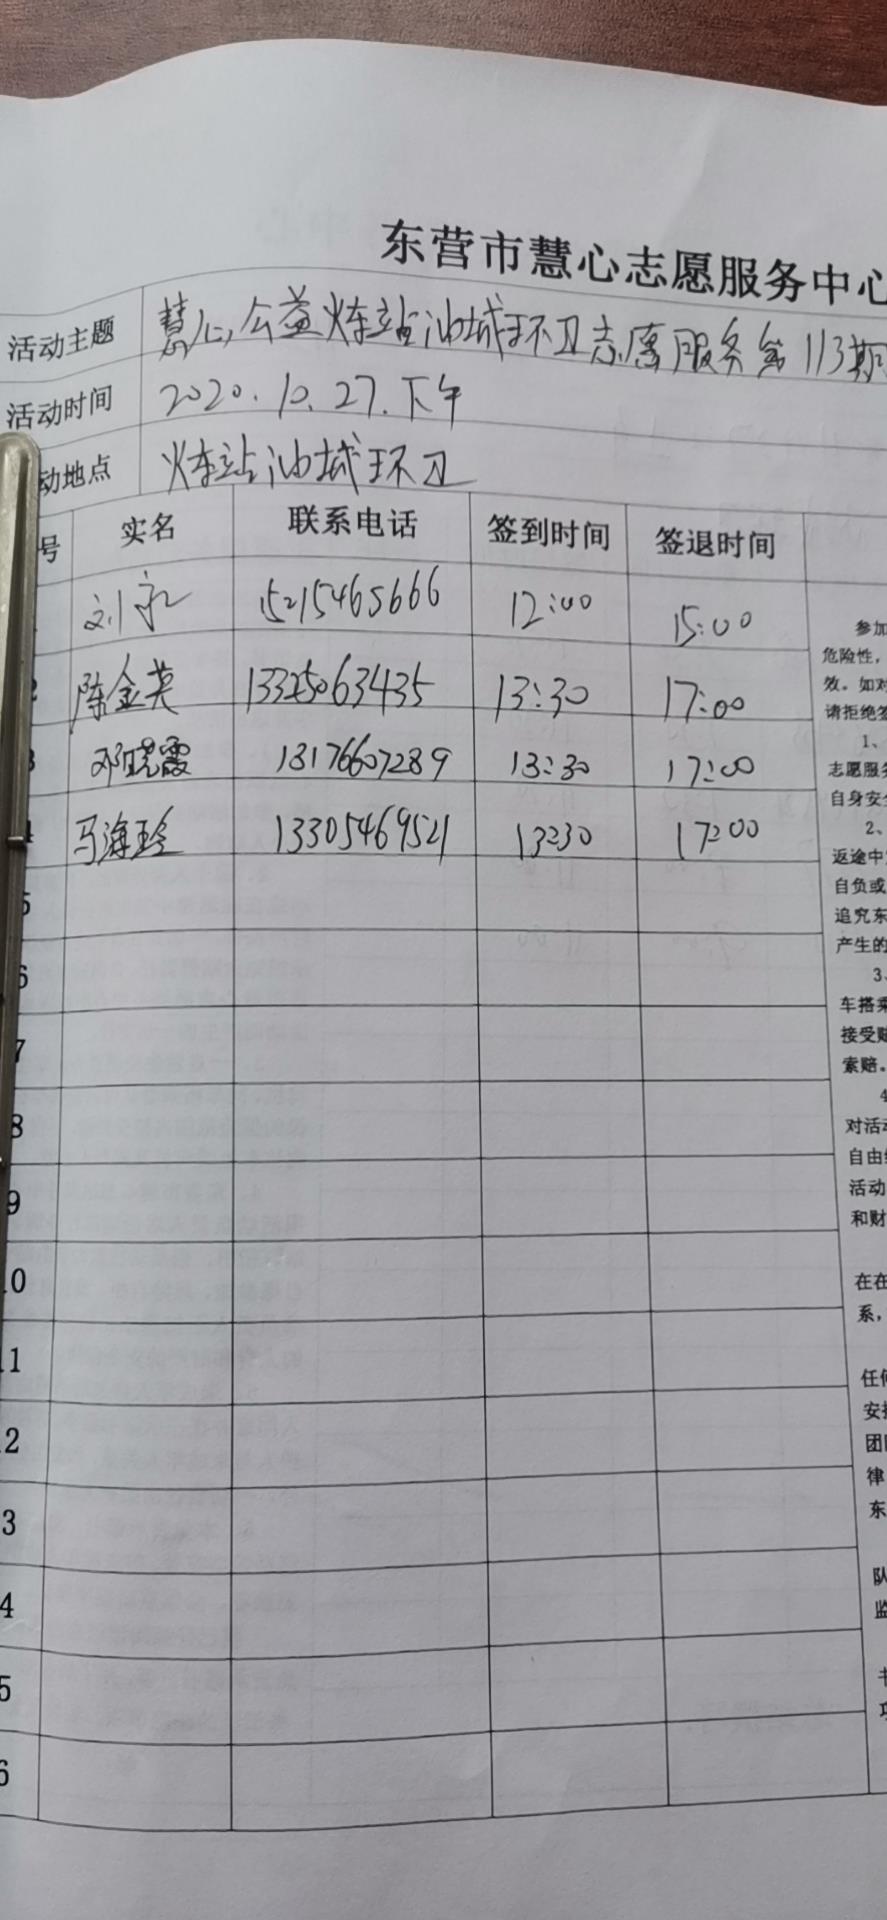 东营市慧心志愿服务中心
活动主题 慧心公益炼站油城环卫志愿服务第113期
活动时间 2020.10.27.下午
动地点 站油城环卫
号 实名 联系电话 签到时间 签退时间
刘永 15215465666 12:00 15:00
2 陈金英 13325063435 13:30 17:00
3 邓晓霞 13176607289 13:30 17:00
4 马海玲 13305469521 13:30 17:00
5
6
7
8
9
10
11
12
3
4
5
6
参加
危险性,
效。如对
请拒绝签
1、
志愿服务
自身安全
2、
返途中
自负或
追究东
产生的
3、
车搭乘
接受赔
索赔。
4
对活动
自由组
活动
和财
在在
系,
任何
安排
团队
律
东
队
监
书
项